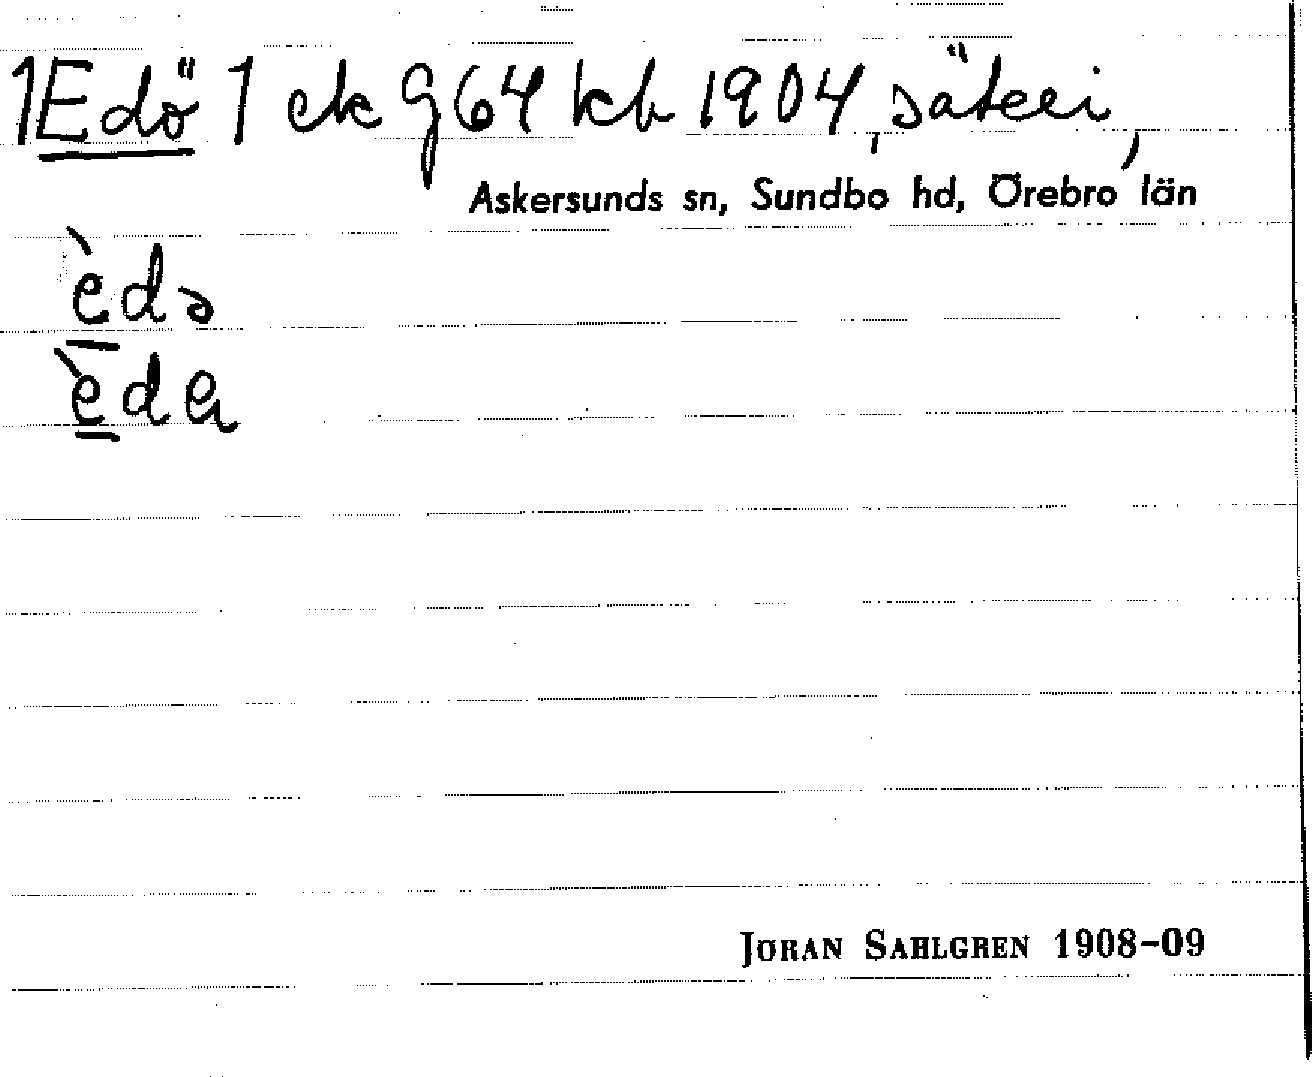 1 Edö 1 ek g 64 kb 1904, säteri,
Askersunds sn, Sundbo hd, Örebro län
èdɔ
èda
JÖRAN SAHLGREN 1908-09